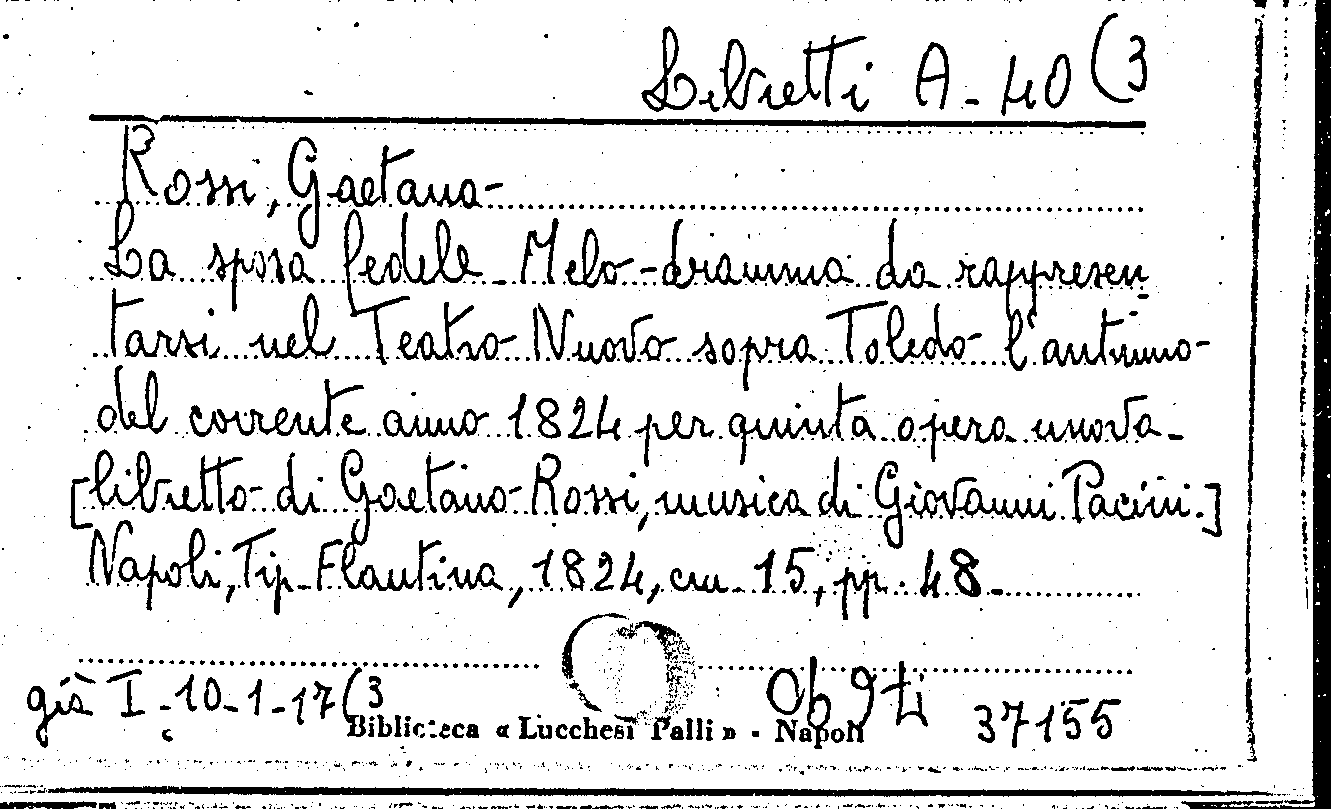 Libretti A - 40 (3
Rossi, Gaetano-
La sposa fedele - Melo-dramma da rappresen
tarsi nel Teatro Nuovo sopra Toledo l'autunno
del corrente anno 1824 per quinta opera nuova -
[libretto di Gaetano Rossi, musica di Giovanni Pacini.]
Napoli, Tip. Flautina, 1824, cm. 15, pp. 48 -
già I - 10 - 1 - 17 (3
37155
Biblioteca « Lucchesi Palli » - Napoli